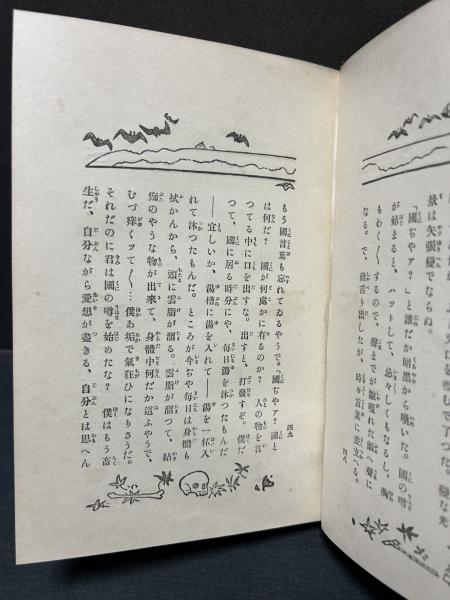 景は矢張變でならぬ。
「國ぢやア？」と誰だか暗黒から嘆いた。國の噂
が始まると、ハツトして、忌々しくもなるし、胸
もわく〳〵するので、聲までが
なる。で、饒舌り出したが、時々言葉に遊支へる。
四八
もう國言葉も忘れてゐるやうで。「國ぢやア？　國と
は何だ？　國が何處かに有るのか？　人の物を言
つてる中に口を出すな。出すと、打發すぞ。僕だ
つて、國に居る時分にや、毎日湯を沐つたもんだ
――宜しいか、湯槽に湯を入れて――湯を一杯入
れて沐つたもんだ。ところが今ぢや毎日は身體も
拭かんから、頭に雲脂が溜る。雲脂が溜つて、結
痂のやうな物が出來て、身體中何だか這ふやうで、
むづ痒くツて〳〵…僕あ垢で氣狂ひになりさうだ。
それだのに君は國の噂を始めたな？　僕はもう畜
生だ、自分ながら愛想が盡きる、自分とは思へん
四九